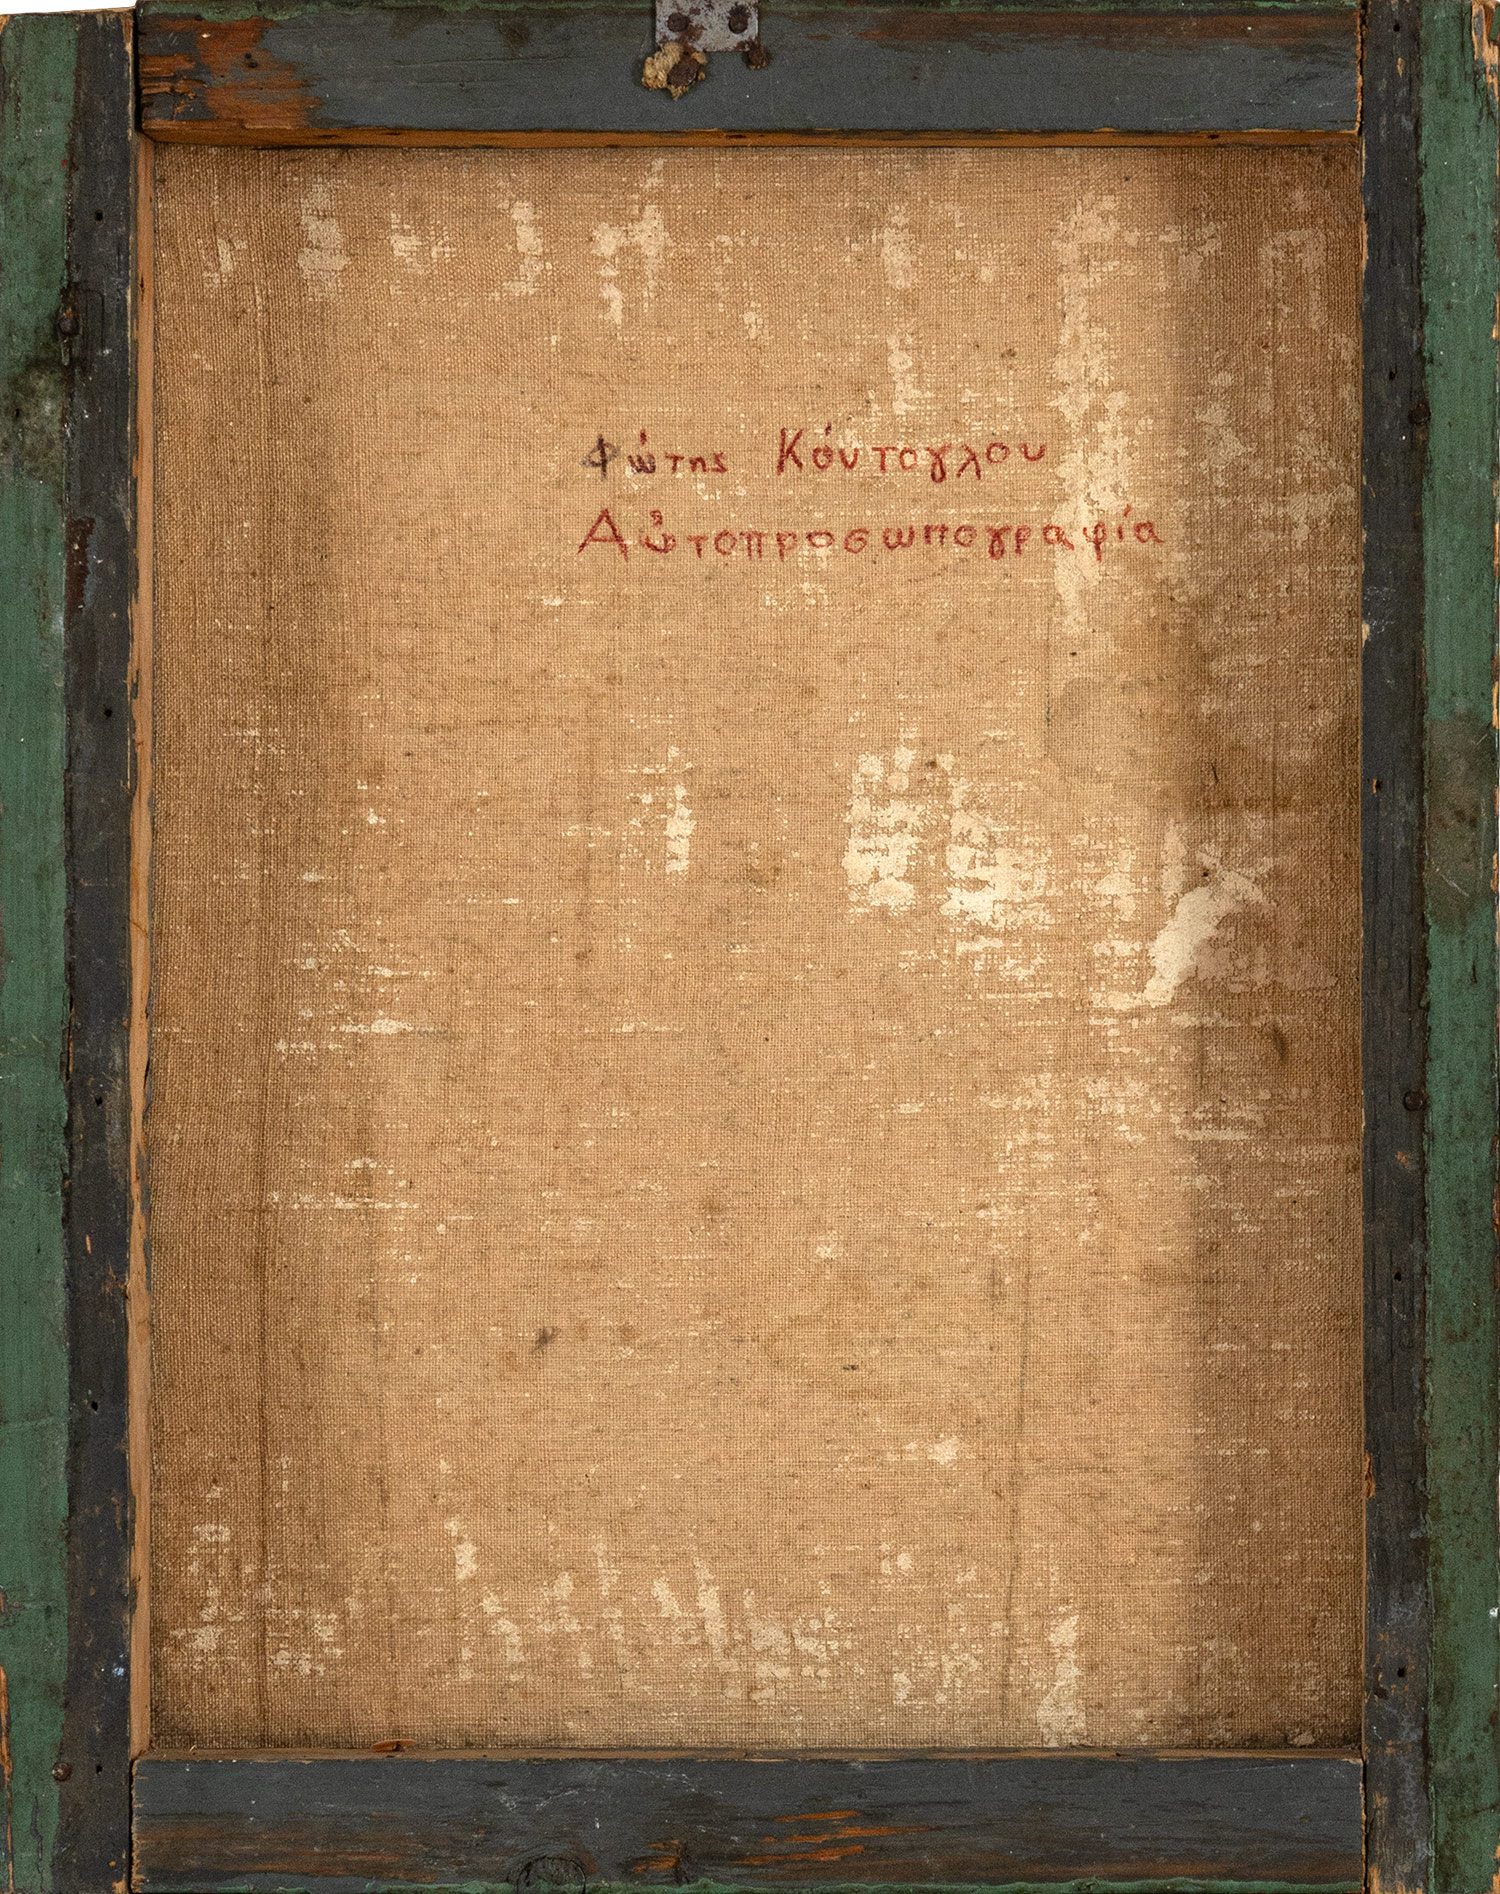 Φώτης Κόντογλου
Αὐτοπροσωπογραφία